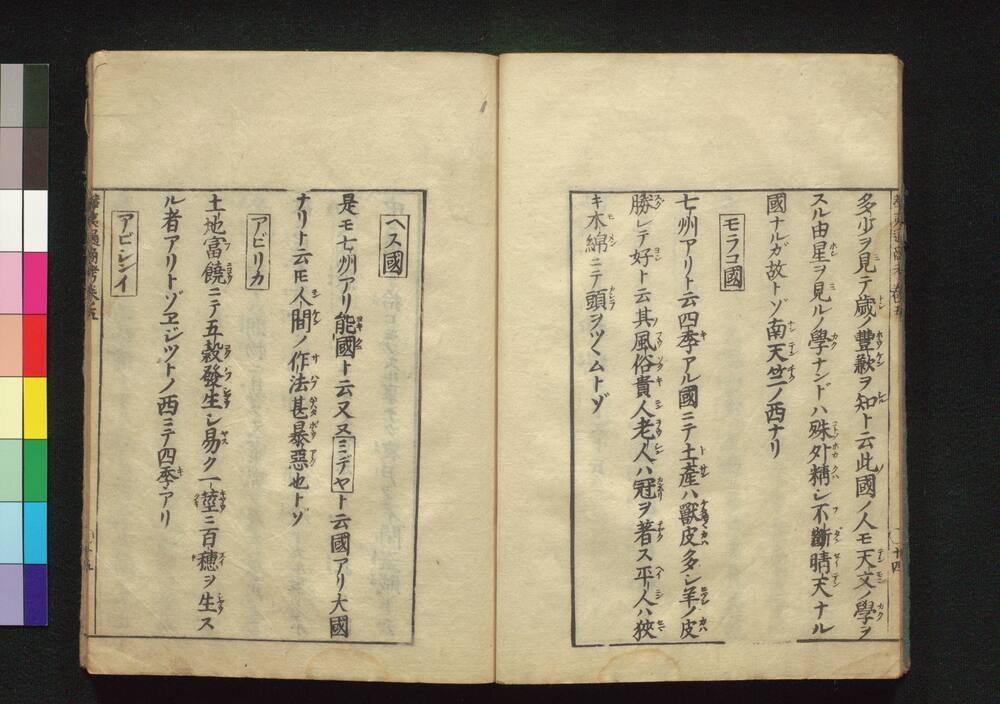 多少ヲ見テ歳ノ豐歉ヲ知ト云此國ノ人モ天文ノ學ヲ
スル由星ヲ見ルノ學ナンドハ殊外精シ不斷晴天ナル
國ナルガ故トゾ南天竺ノ西ナリ
モラコ國
七州アリト云四季アル國ニテ土產ハ獸皮多シ羊ノ皮
勝レテ好ト云其風俗貴人老人ハ冠ヲ著ス平人ハ狹
キ木綿ニテ頭ヲツヽムトゾ
ヘス國
是モ七州アリ能國ト云又又ミデヤト云國アリ大國
ナリト云𪜈人間ノ作法甚暴惡也トゾ
アビリカ
土地富饒ニテ五穀發生シ易ク一莖ニ百穗ヲ生ス
ル者アリトゾヱジツトノ西ニテ四季アリ
アビシンイ